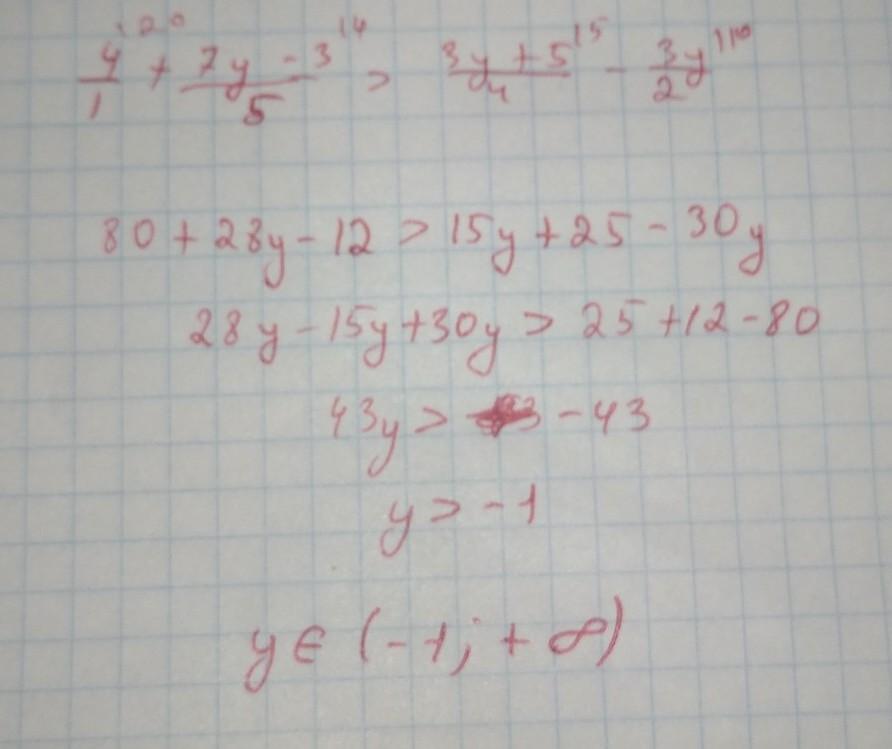 4/1 |20 + (7y - 3)/5 |4 > (3y + 5)/4 |5 - 3y/2 |10
80 + 28y - 12 > 15y + 25 - 30y
28y - 15y + 30y > 25 + 12 - 80
43y > - 43
y > - 1
y ∈ (- 1; + ∞)